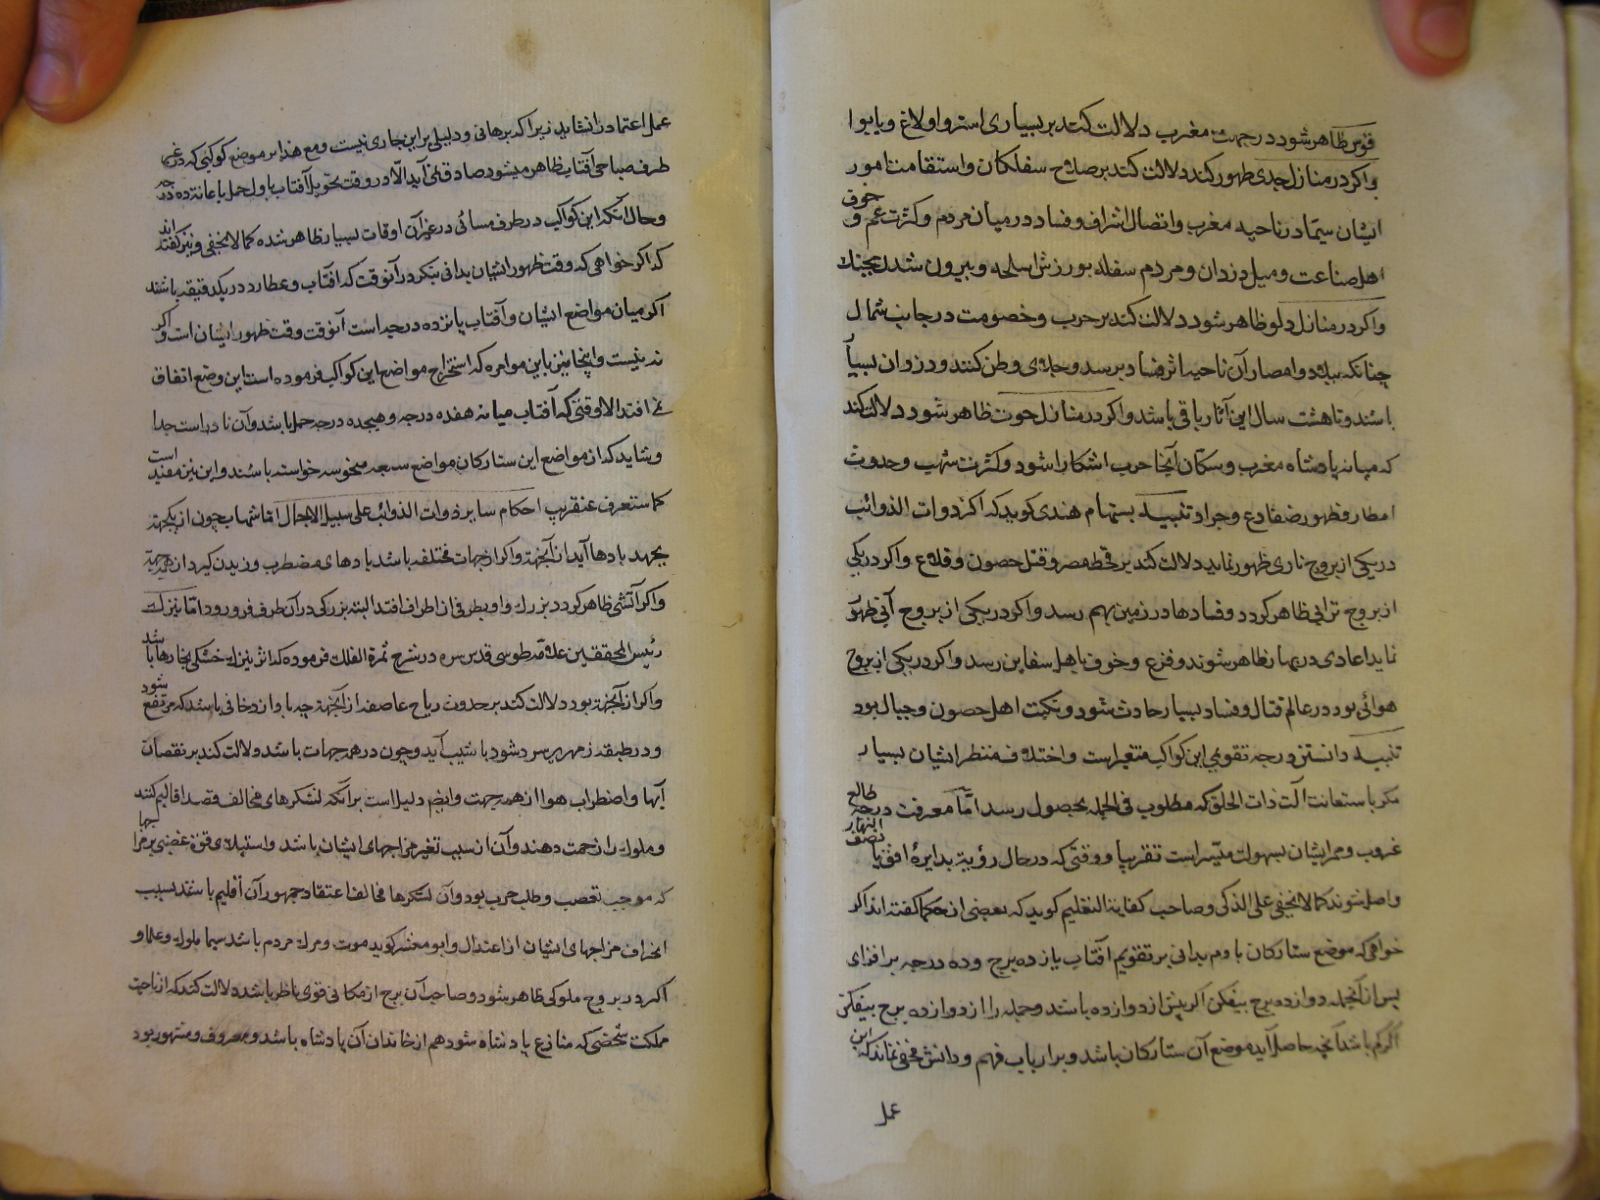 قوس ظاهر شود در جهت مغرب دلالت کند بر بسیاری استر و اولاغ و یابوا
و اکر در منازل جدی ظهور کند دلالت کند بر صلاح سفلکان و استقامت امور
ایشان سیما در ناحیه مغرب و اتصال اشراف و فساد در میان مردم و کثرت غم و خوف
اهل صناعت و میل دزدان و مردم سفله بورزش اسلحه و بیرون شدن بجنک
و اکر در منازل دلو ظاهر شود دلالت کند بر حرب و خصومت در جانب شمال
چنانکه ببلاد و امصار آن ناحیه اثر فساد برسد و جلای وطن کنند و دزدان بسیا
باشند و تا هشت سال این آثار باقی باشد و اکر در منازل حوت ظاهر شود دلالت کند
که میانه پادشاه مغرب و سکان آنجا حرب اشکارا شود و کثرت شهب و حدوث
امطار و ظهور ضفادع و جراد تنبیه بستهام هندی کوید که اکر ذوات الذوائب
در یکی از بروج ناری ظهور نماید دلالت کند بر قحط مصر و قتل حصون و قلاع و اکر در یکی
از بروج ترابی ظاهر کردد و فسادها در زمین بهم رسد و اکر در یکی از بروج آبی ظهور
نماید اعادی در بحار ظاهر شوند و فزع و خوف باهل سفاین رسد و اکر در یکی از بروج
هوائی بود در عالم قتال و فساد بسیار حادث شود و نکبت اهل حصون و جبال بود
تنبیه دانستن درجه تقویمی این کواکب متغیر است و اختلاف منظر ایشان بسیار
مکر باستعانت آلت ذات الحلق که مطلوب فی الجمله بحصول رسد اما معرفت درجه طالع
غروب و ممر ایشان بسهولت میسر است تقریبا و وقتی که در حال رؤیة بدایرهٔ افق یا نصف النهار
واصل شوند کما لا یخفی علی الذکی و صاحب کفایة التعلیم کوید که بعضی از حکما کفته اند اکر
خواهی که موضع ستارکان بادم بدانی بر تقویم آفتاب یازده برج و ده درجه بر افزای
پس از آنجمله دوازده برج بیفکن اکر بیش از دوازده باشد و جمله را از دوازده برج بیفکن
اکر کم باشد آنچه حاصل آید موضع آن ستارکان باشد و بر ارباب فهم و دانش مخفی نماند که این
عمل
عمل اعتماد را نشاید زیرا که برهانی و دلیلی بر این جاری نیست و مع هذا بر موضع کوکبی که در غیر
طرف صباحی آفتاب ظاهر میشود صادق نمی آید الا در وقت تحویل آفتاب باول حمل یا غایة ده درجه
و حال آنکه این کواکب در طرف مسائی در غیر آن اوقات بسیار ظاهر شده کما لا یخفی و نیز کفته اند
که اکر خواهی که وقت ظهور ایشان بدانی بنکر در آنوقت که آفتاب و عطارد در یکدقیقه باشند
اکر میان مواضع ایشان و آفتاب پانزده درجه است آنوقت وقت ظهور ایشان است و اکر
نه نیست و اینجا نیز باین موامره که استخراج مواضع این کواکب فرموده است این وضع اتفاق
نمی افتد الا وقتی که آفتاب میانه هفده درجه و هیجده درجه حمل باشد و آن نادر است جدا
و شاید که از مواضع این ستارکان مواضع سبعه منحوسه خواسته باشند و این نیز مفید است
کما ستعرف عنقریب احکام سایر ذوات الذوائب علی سبیل الاجمال اما شهاب چون از یکجهته
بجهد بادها آید از آنجهة و اکر از جهات مختلفه باشد بادهای مضطرب وزیدن کیرد از همه جهة
و اکر آتشی ظاهر کردد بزرك و او بطرفی از اطراف افتد البته بزرکی در آن طرف فرو رود اما نیزك
رئیس المحققین علامه طوسی قدس سره در شرح ثمرة الفلك فرموده که اثر نیزك خشکی بخارها باشد
و اکر از آنجهة بود دلالت کند بر حدوث ریاح عاصفه از آنجهة چه باد از دخانی باشد که مرتفع شود
و در طبقه زمهریر سرد شود باشیب آید و چون در همه جهات باشد دلالت کند بر نقصان
آبها و اضطراب هوا از همه جهت و ایضم دلیل است بر آنکه لشکرهای مخالف قصد اقالیم کنند
و ملوك را زحمت دهند و آن از سبب تغیر مزاجهای ایشان باشد و استیلای قوة غضبی بر مزاجها
که موجب تعصب و طلب حرب بود و آن لشکرها مخالف اعتقاد جمهور آن اقلیم باشند بسبب
انحراف مزاجهای ایشان از اعتدال و ابو معشر کوید موت و مرك مردم باشد سیما ملوك و علما و
اکر در بروج ملوکی ظاهر شود و صاحب آن برج از مکانی قوی ناظر باشد دلالت کند که از ناحیت
مملکت شخصی که منازع پادشاه شود هم از خاندان آن پادشاه باشد و معروف و مشهور بود